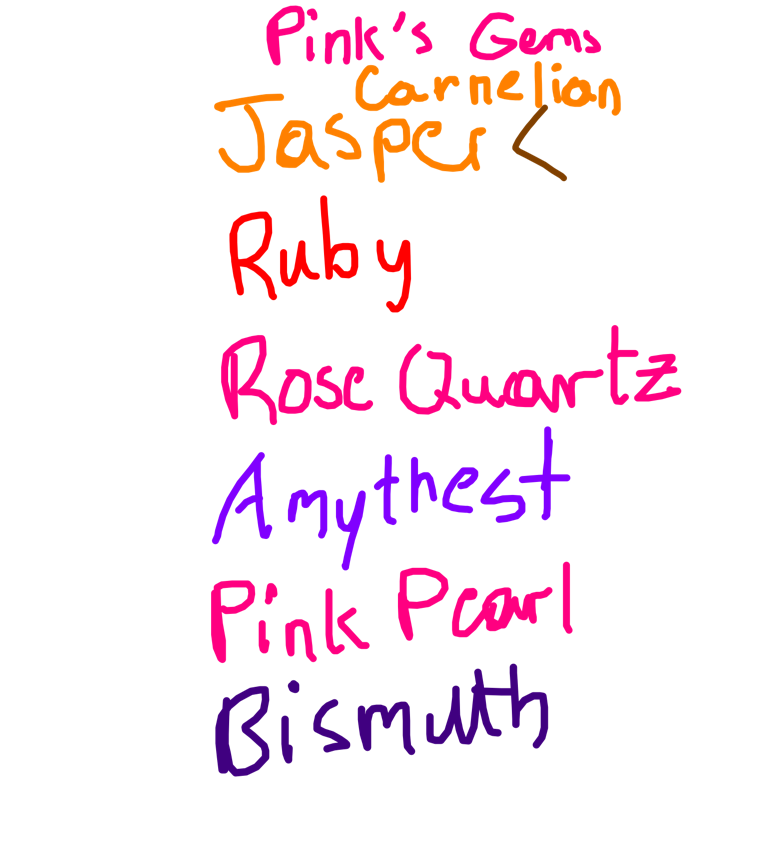 Pink's Gems
Carnelian
Jasper <
Ruby
Rose Quartz
Amythest
Pink Pearl
Bismuth